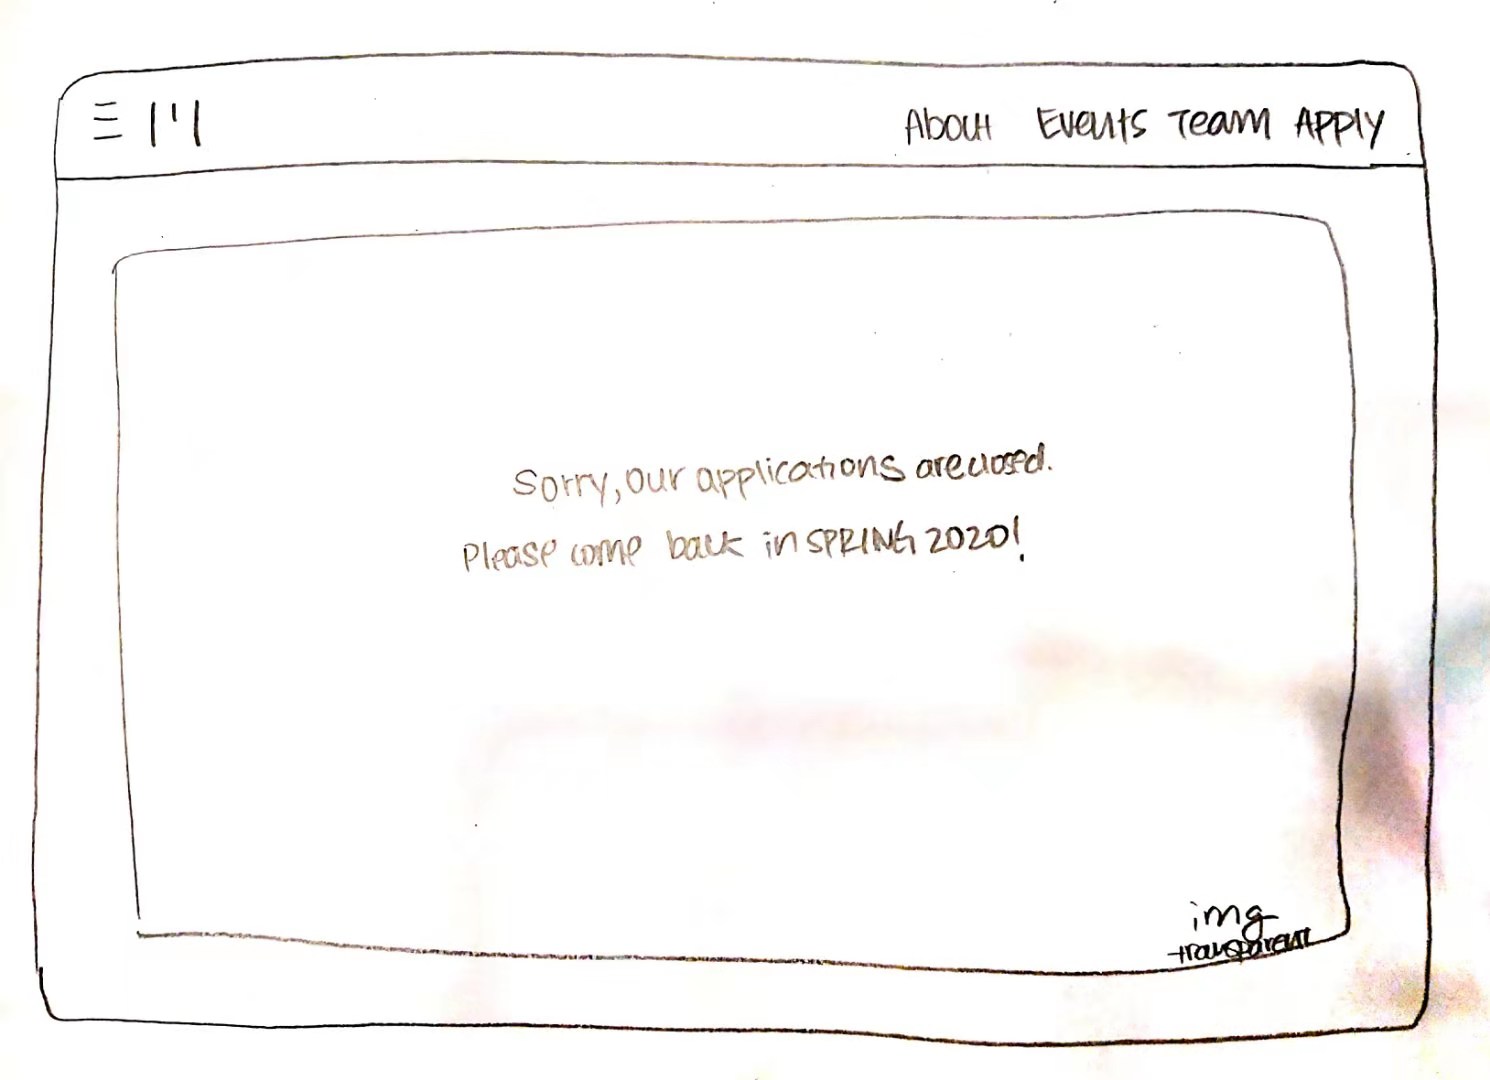 About Events Team APPLY
Sorry, our applications are closed.
Please come back in SPRING 2020!
img
transparent